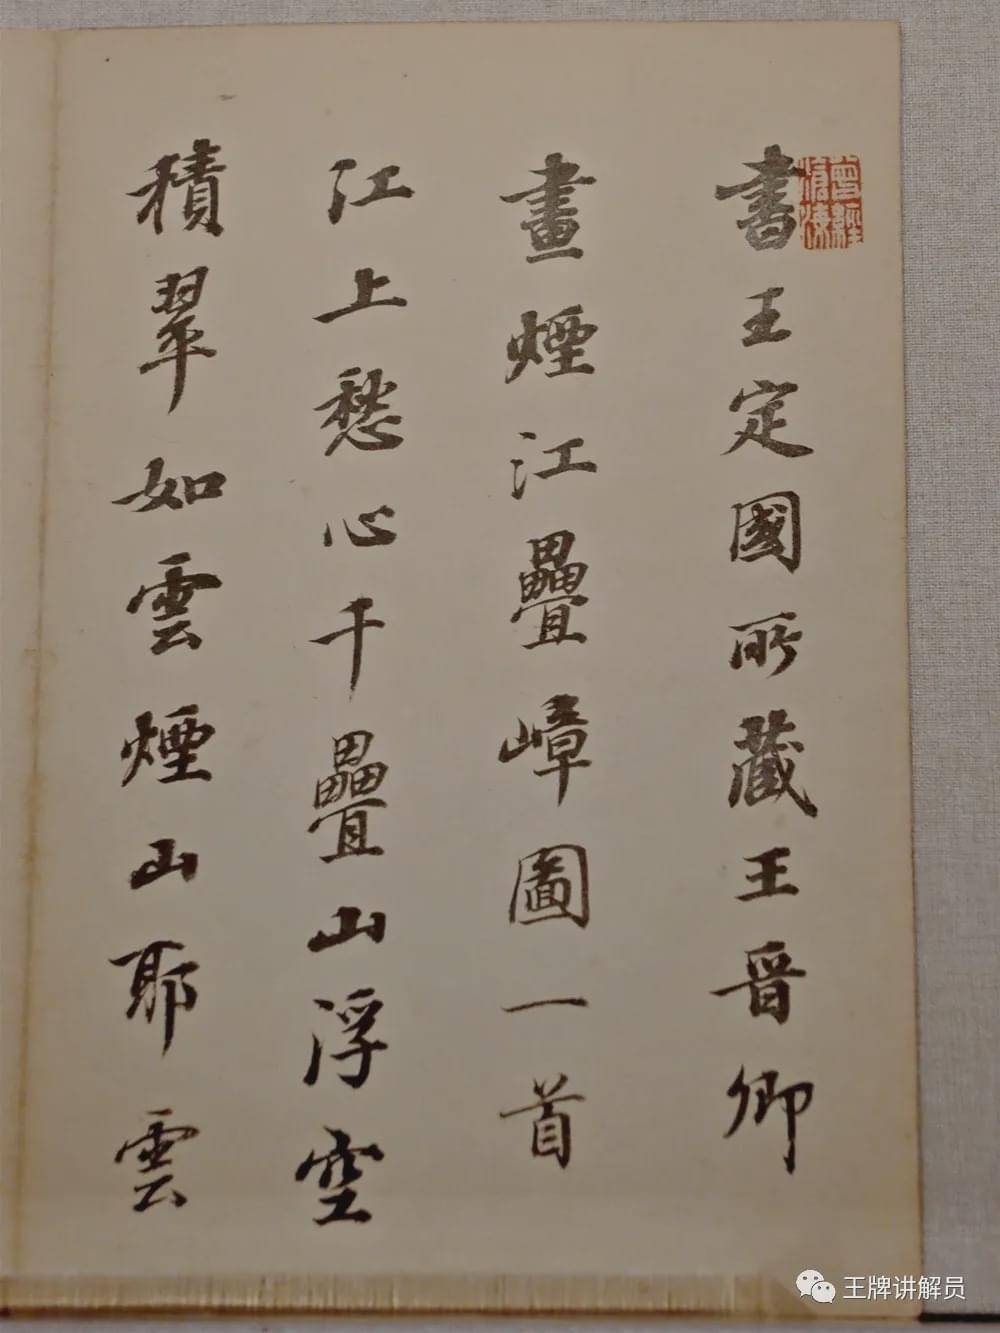 書王定國所藏王晉卿
畫煙江疊嶂圖一首
江上愁心千疊山浮空
積翠如雲煙山耶雲
王牌讲解员